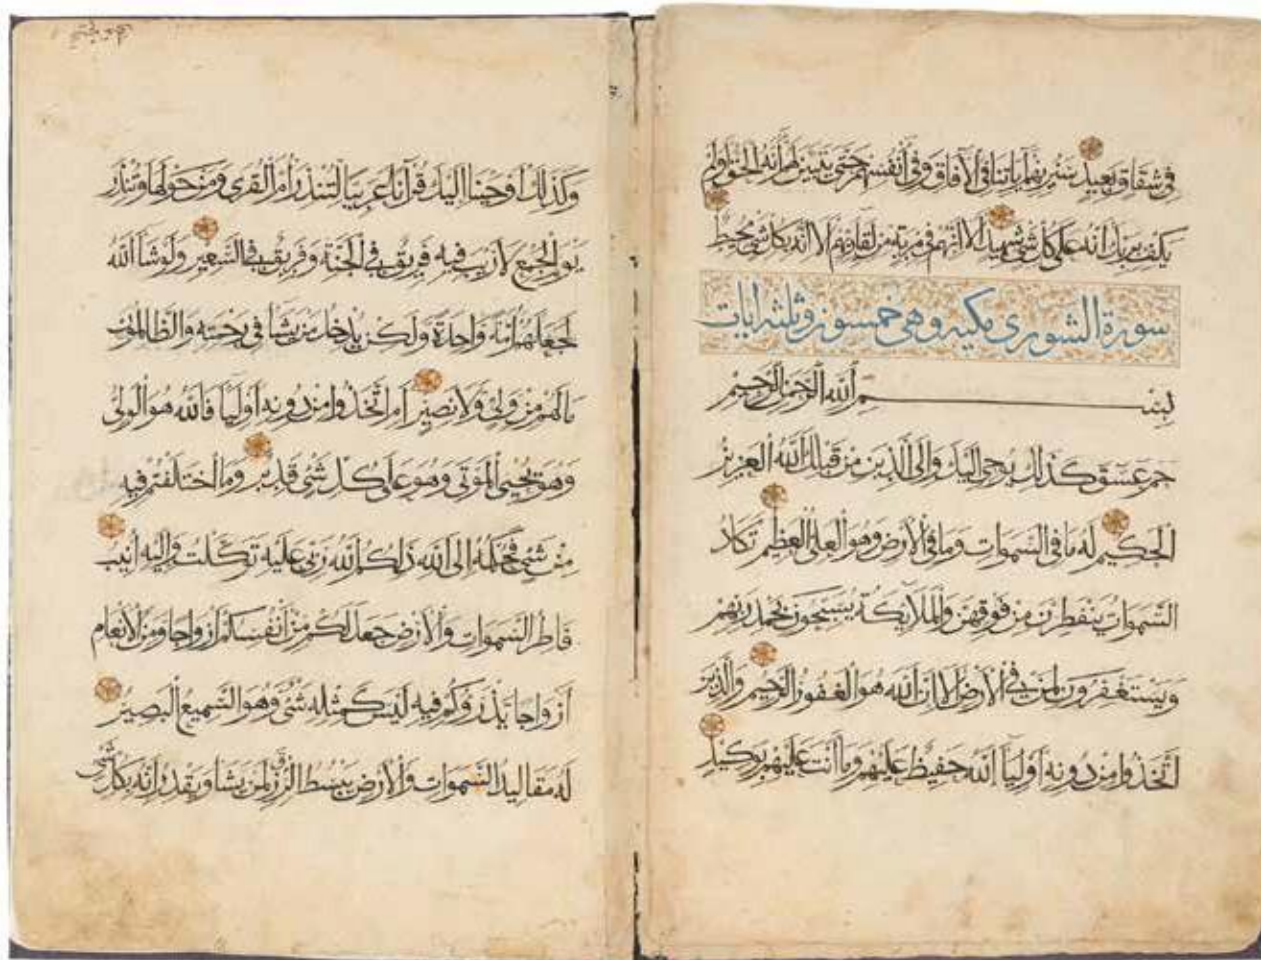 في شقاق بعيد سنريهم آياتنا في الآفاق وفي أنفسهم حتى يتبين لهم أنه الحق أولم
يكف بربك أنه على كل شيء شهيد ألا إنهم في مرية من لقاء ربهم ألا إنه بكل شيء محيط
سورة الشورى مكيه وهي خمسون وثلثه ايات
بسم الله الرحمن الرحيم
حم عسق كذلك يوحي إليك وإلى الذين من قبلك الله العزيز
الحكيم له ما في السموات وما في الأرض وهو العلي العظيم تكاد
السموات يتفطرن من فوقهن والملائكة يسبحون بحمد ربهم
ويستغفرون لمن في الأرض ألا إن الله هو الغفور الرحيم والذين
اتخذوا من دونه أولياء الله حفيظ عليهم وما أنت عليهم بوكيل
وكذلك أوحينا إليك قرآنا عربيا لتنذر أم القرى ومن حولها وتنذر
يوم الجمع لا ريب فيه فريق في الجنة وفريق في السعير ولو شاء الله
لجعلهم أمة واحدة ولكن يدخل من يشاء في رحمته والظالمون
ما لهم من ولي ولا نصير أم اتخذوا من دونه أولياء فالله هو الولي
وهو يحيي الموتى وهو على كل شيء قدير وما اختلفتم فيه
من شيء فحكمه إلى الله ذلكم الله ربي عليه توكلت وإليه أنيب
فاطر السموات والأرض جعل لكم من أنفسكم أزواجا ومن الأنعام
أزواجا يذرؤكم فيه ليس كمثله شيء وهو السميع البصير
له مقاليد السموات والأرض يبسط الرزق لمن يشاء ويقدر إنه بكل شيء